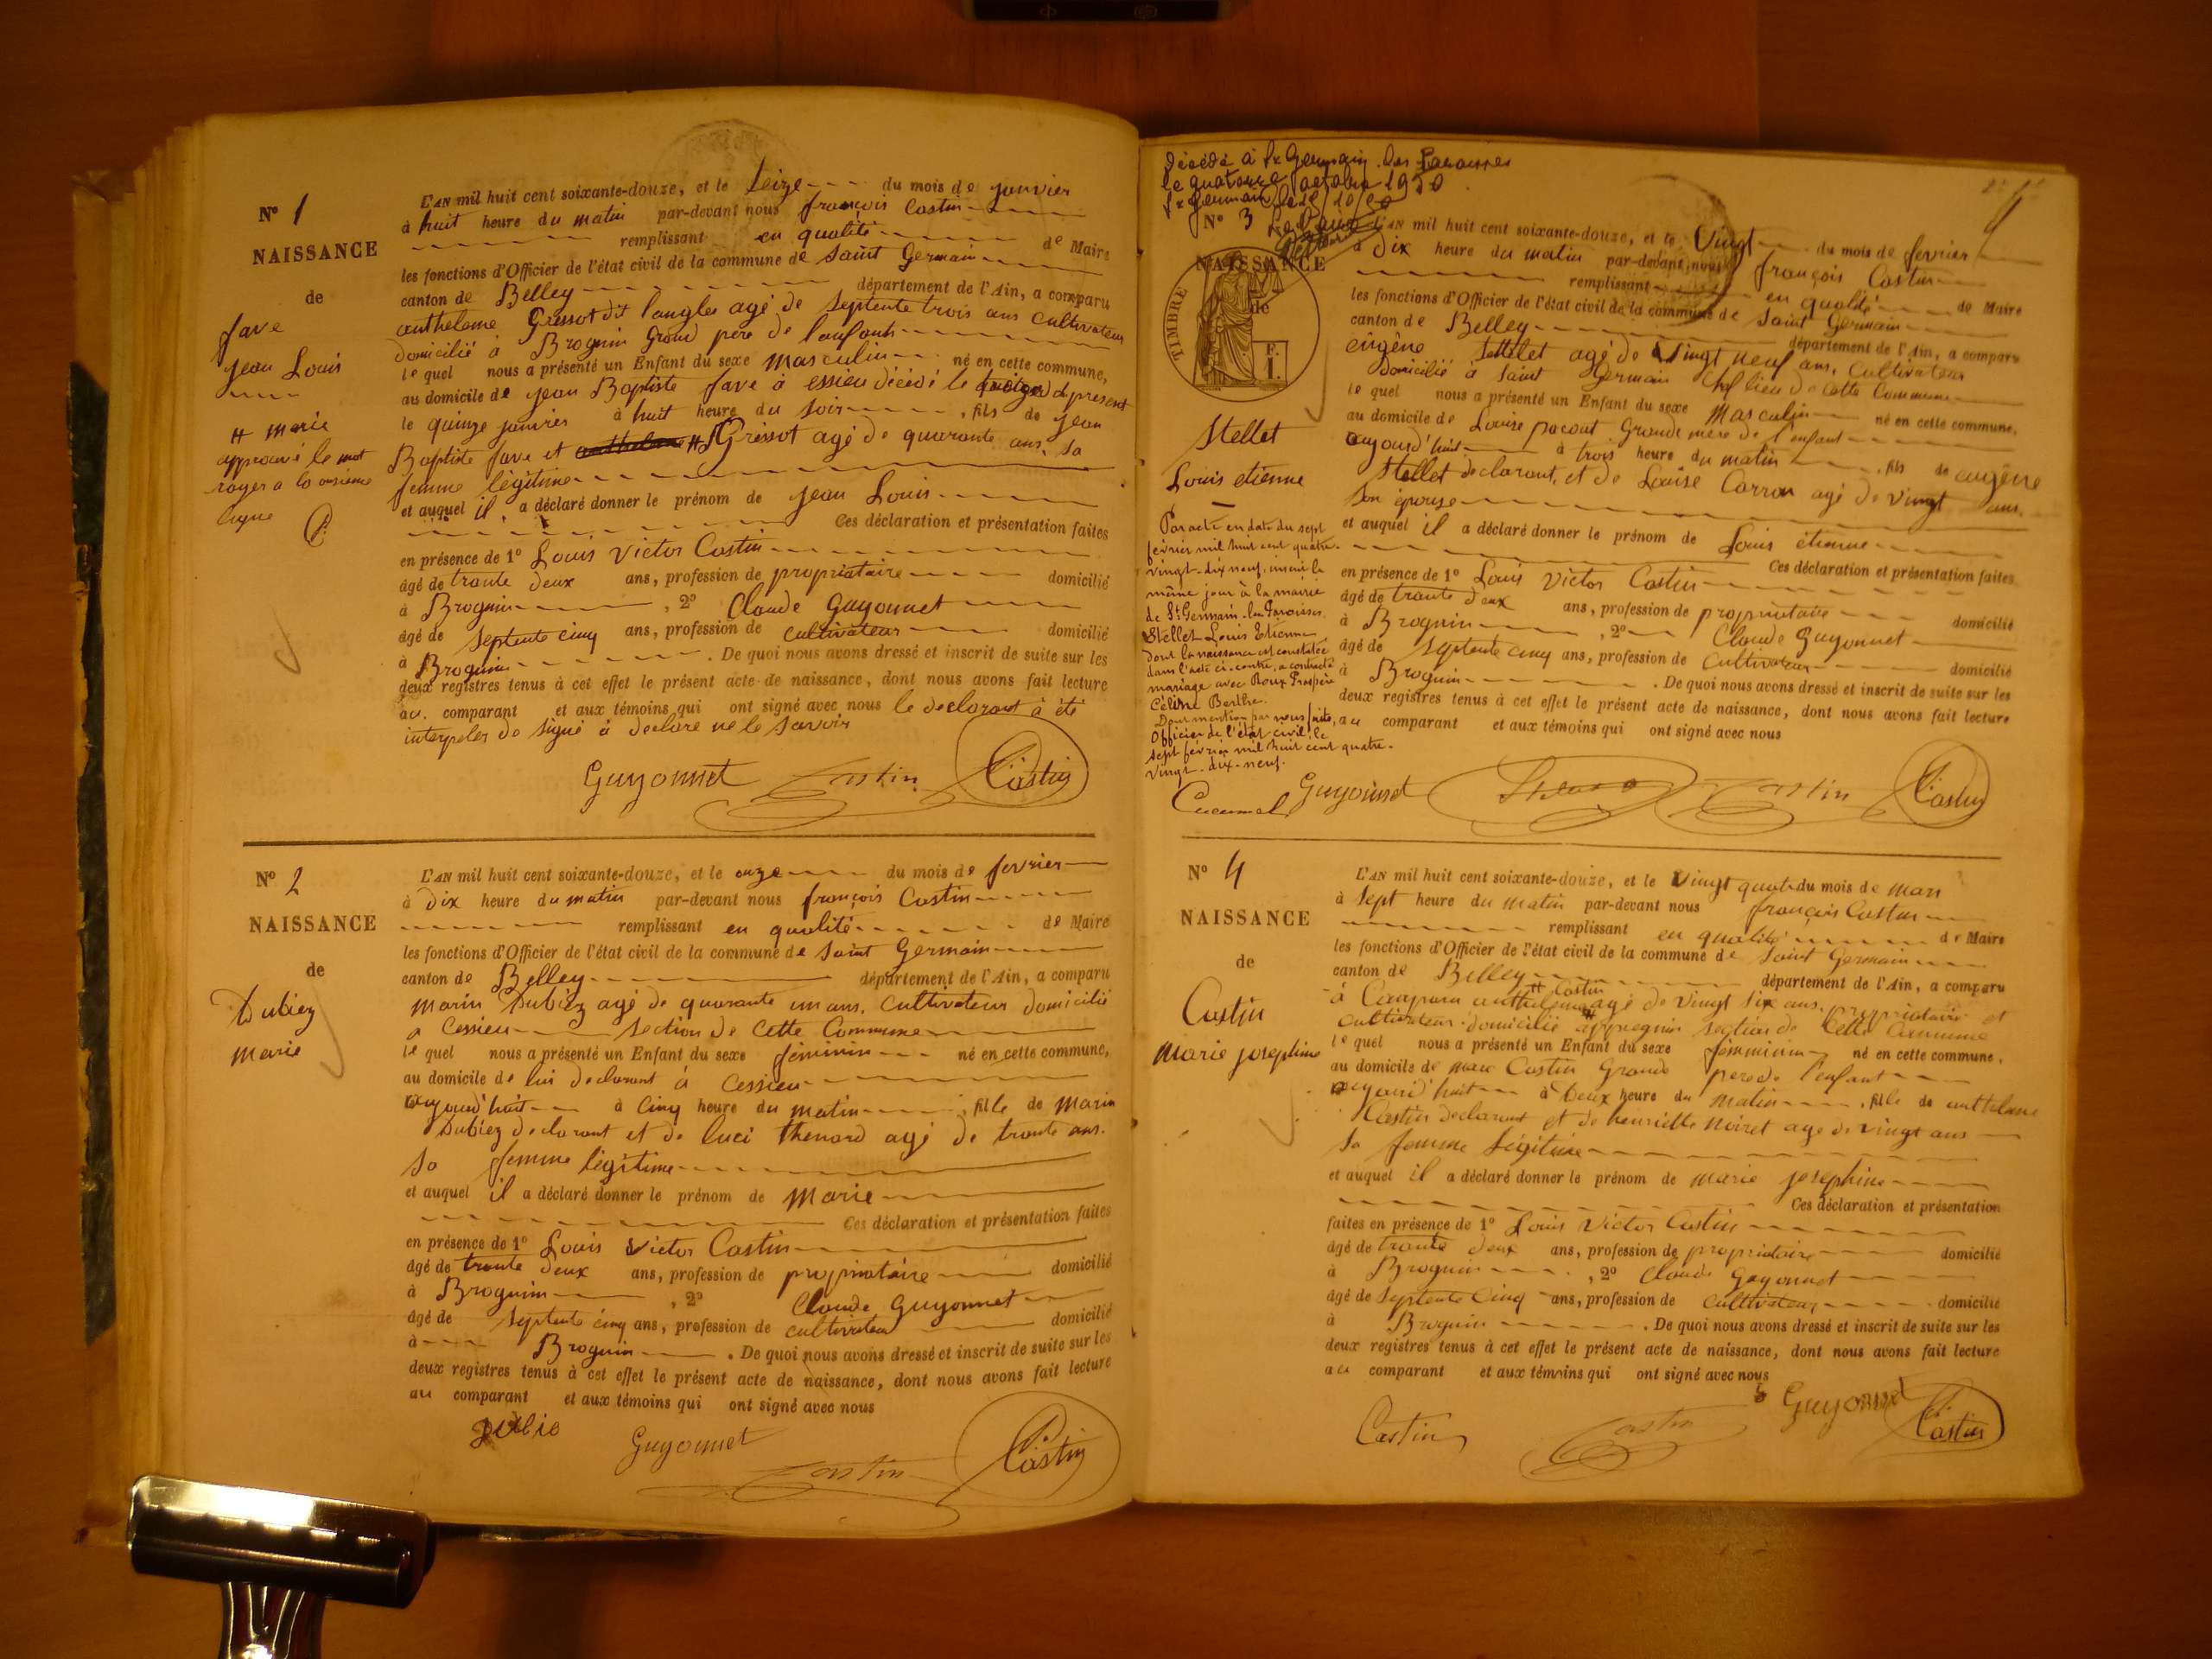 N° 1
NAISSANCE
de
fave
jean Louis
# marie
approuvé le mot
rayer a la onsieme
ligne
L'AN mil huit cent soixante-douze, et le seize du mois de janvier
à huit heure du matin par-devant nous françois Castin
remplissant en qualité de Maire
les fonctions d'Officier de l'état civil de la commune de saint Germain
canton de Belley département de l'Ain, a comparu
anthelme Gressot dit langles agé de septente trois ans cultivateur
domicilié à Brognin Grand pere de l'enfant
lequel nous a présenté un Enfant du sexe masculin né en cette commune,
au domicile de jean Baptiste fave à essieu décédé le present
le quinze janvier à huit heure du soir, fils de jean
Baptiste fave et # Gressot agé de quarante ans, sa
femme légitime
et auquel il a déclaré donner le prénom de jean Louis
Ces déclaration et présentation faites
en présence de 1° Louis Victor Castin
âgé de trante deux ans, profession de propriataire domicilié
à Brognin, 2° Claude Guyonnet
âgé de septente cinq ans, profession de cultivateur domicilié
à Brognin. De quoi nous avons dressé et inscrit de suite sur les
deux registres tenus à cet effet le présent acte de naissance, dont nous avons fait lecture
au comparant et aux témoins qui ont signé avec nous le declarant à été
interpeler de signé à declare ne le savoir
Guyonnet Castin Castin
N° 2
NAISSANCE
de
Dubiez
marie
L'AN mil huit cent soixante-douze, et le onze du mois de fevrier
à dix heure du matin par-devant nous françois Castin
remplissant en qualité de Maire
les fonctions d'Officier de l'état civil de la commune de saint Germain
canton de Belley département de l'Ain, a comparu
marin Dubiez agé de quarante un ans, cultivateur domicilié
a Cessieu section de cette Commune
lequel nous a présenté un Enfant du sexe féminin né en cette commune,
au domicile de lui declarant à Cessieu
aujourd'huit à cinq heure du matin, fille de marin
Dubiez declarant et de luci thenard agé de trante ans.
sa femme légitime
et auquel il a déclaré donner le prénom de marie
Ces déclaration et présentation faites
en présence de 1° Louis Victor Castin
âgé de trante deux ans, profession de propriataire domicilié
à Brognin, 2° Claude Guyonnet
âgé de septente cinq ans, profession de cultivateur domicilié
à Brognin. De quoi nous avons dressé et inscrit de suite sur les
deux registres tenus à cet effet le présent acte de naissance, dont nous avons fait lecture
au comparant et aux témoins qui ont signé avec nous
Guyonnet
Castin Castin
Décédé à St Germain les Paroisses
le quatorze octobre 1950
St Germain le 18/10/50
Le Maire
N° 3
NAISSANCE
de
TIMBRE
F.
1.
Stellet
Louis etienne
Par acte en date du sept
février mil huit cent quatre-
vingt-dix neuf, inscrit le
même jour à la mairie
de St Germain-les-Paroisses
Stellet Louis Etienne
dont la naissance est constatée
dans l'acte ci-contre, a contracté
mariage avec Roux Prospère
Céline Berthe.
Dont mention par nous faite,
Officier de l'état civil, le
sept février mil huit cent quatre-
vingt-dix-neuf.
L'AN mil huit cent soixante-douze, et le Vingt du mois de fevrier
à Dix heure du matin par-devant nous françois Castin
remplissant en qualité de Maire
les fonctions d'Officier de l'état civil de la commune de saint Germain
canton de Belley département de l'Ain, a comparu
eugène Stellet agé de Vingt neuf ans, Cultivateur
domicilié à saint Germain Chf lieu de cette Commune
lequel nous a présenté un Enfant du sexe Masculin né en cette commune,
au domicile de Louise pacout Grande mere de l'enfant
aujourd'huit à trois heure du matin, fils de eugène
Stellet declarant, et de Louise Carron agé de vingt ans,
son épouse
et auquel il a déclaré donner le prénom de Louis étienne
Ces déclaration et présentation faites
en présence de 1° Louis Victor Castin
âgé de trante deux ans, profession de propriataire domicilié
à Brognin, 2° Claude Guyonnet
âgé de septente cinq ans, profession de Cultivateur domicilié
à Brognin. De quoi nous avons dressé et inscrit de suite sur les
deux registres tenus à cet effet le présent acte de naissance, dont nous avons fait lecture
au comparant et aux témoins qui ont signé avec nous
Guyonnet Castin Castin
N° 4
NAISSANCE
de
Castin
Marie josephine
L'AN mil huit cent soixante-douze, et le Vingt quat du mois de mars
à sept heure du matin par-devant nous françois Castin
remplissant en qualité de Maire
les fonctions d'Officier de l'état civil de la commune de saint Germain
canton de Belley département de l'Ain, a comparu
# Castin
à Comparu anthelme agé de vingt six ans, propriataire et
cultivateur domicilié section de cette Commune
lequel nous a présenté un Enfant du sexe féminin né en cette commune,
au domicile de marc Castin Grand pere de l'enfant
aujourd'huit à Deux heure du matin, fille de anthelme
Castin declarant et de henriette noiret agé de vingt ans
sa femme légitime
et auquel il a déclaré donner le prénom de marie josephine
Ces déclaration et présentation
faites en présence de 1° Louis Victor Castin
âgé de trante deux ans, profession de propriataire domicilié
à Brognin, 2° Claude Guyonnet
âgé de septente cinq ans, profession de cultivateur domicilié
à Brognin. De quoi nous avons dressé et inscrit de suite sur les
deux registres tenus à cet effet le présent acte de naissance, dont nous avons fait lecture
au comparant et aux témoins qui ont signé avec nous
Guyonnet
Castin Castin Castin